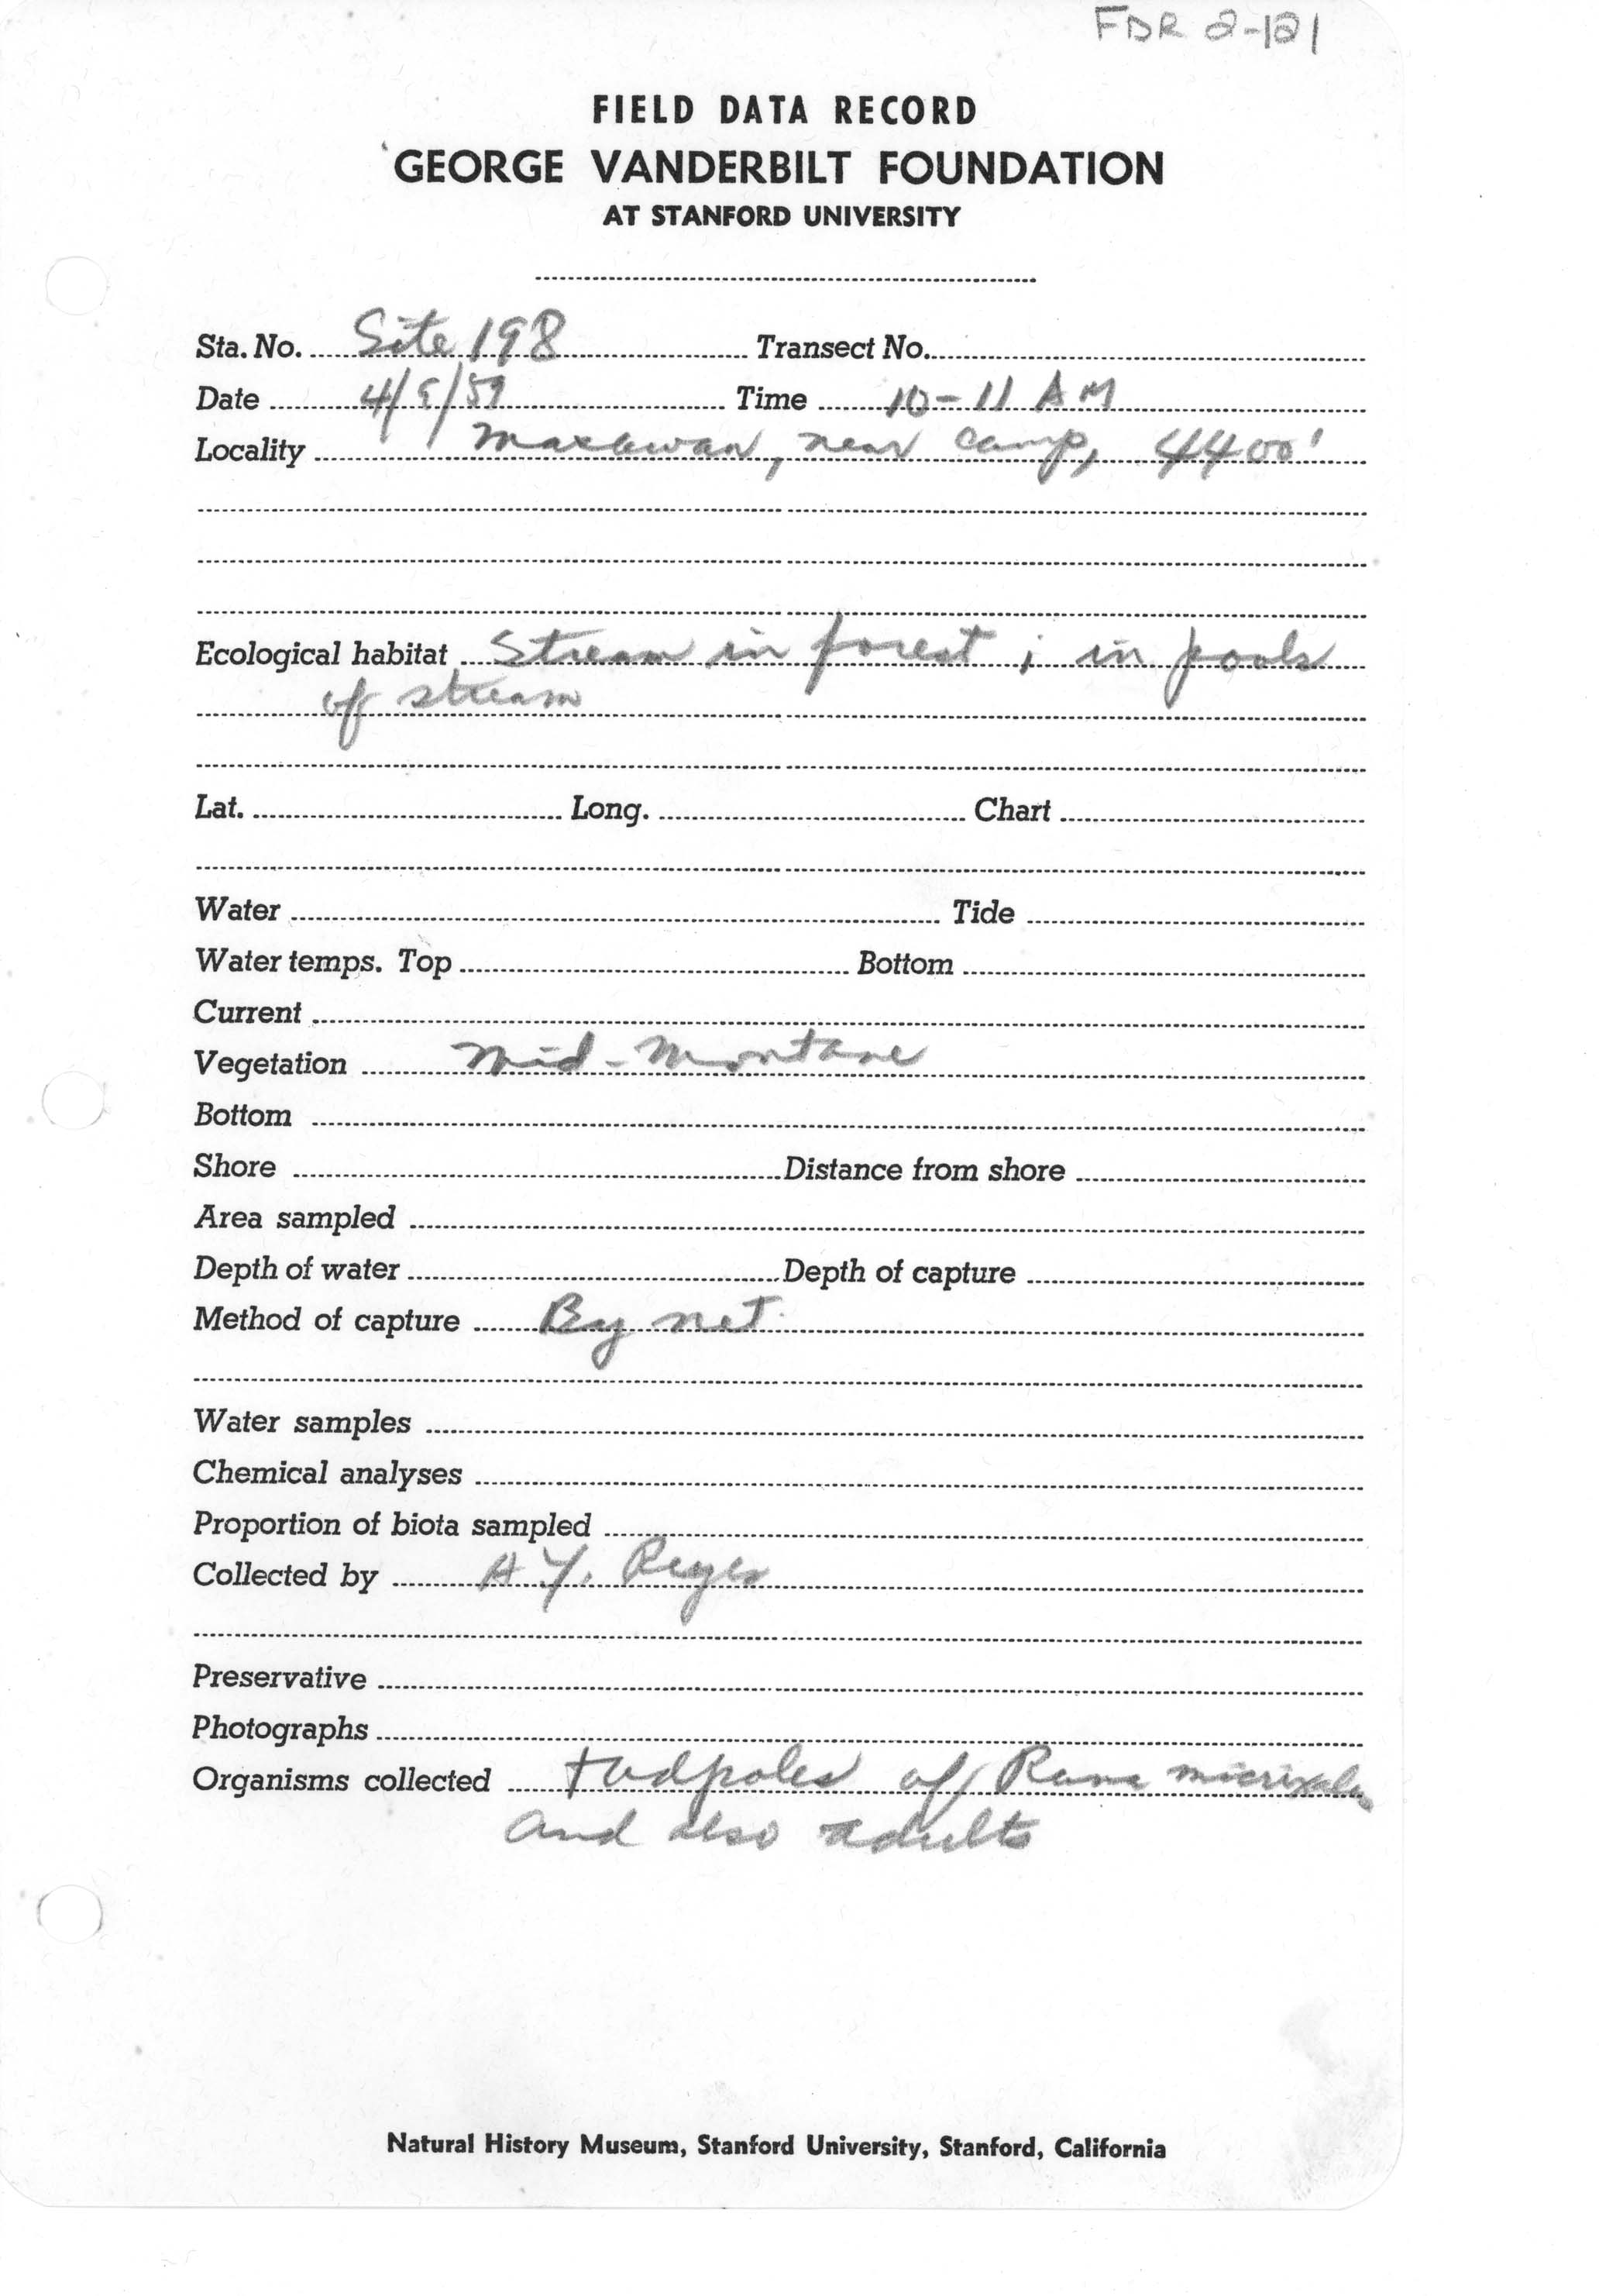 FDR 2-121
FIELD DATA RECORD
GEORGE VANDERBILT FOUNDATION
AT STANFORD UNIVERSITY
Sta. No. Site 198 Transect No.
Date 4/9/59 Time 10-11 AM
Locality near camp, 4400'
Ecological habitat Stream in forest; in pools
of stream
Lat. Long. Chart
Water Tide
Water temps. Top Bottom
Current
Vegetation Mid-Montane
Bottom
Shore Distance from shore
Area sampled
Depth of water Depth of capture
Method of capture By net.
Water samples
Chemical analyses
Proportion of biota sampled
Collected by A Y. Reyes
Preservative
Photographs
Organisms collected tadpoles of Rana
and also adults
Natural History Museum, Stanford University, Stanford, California